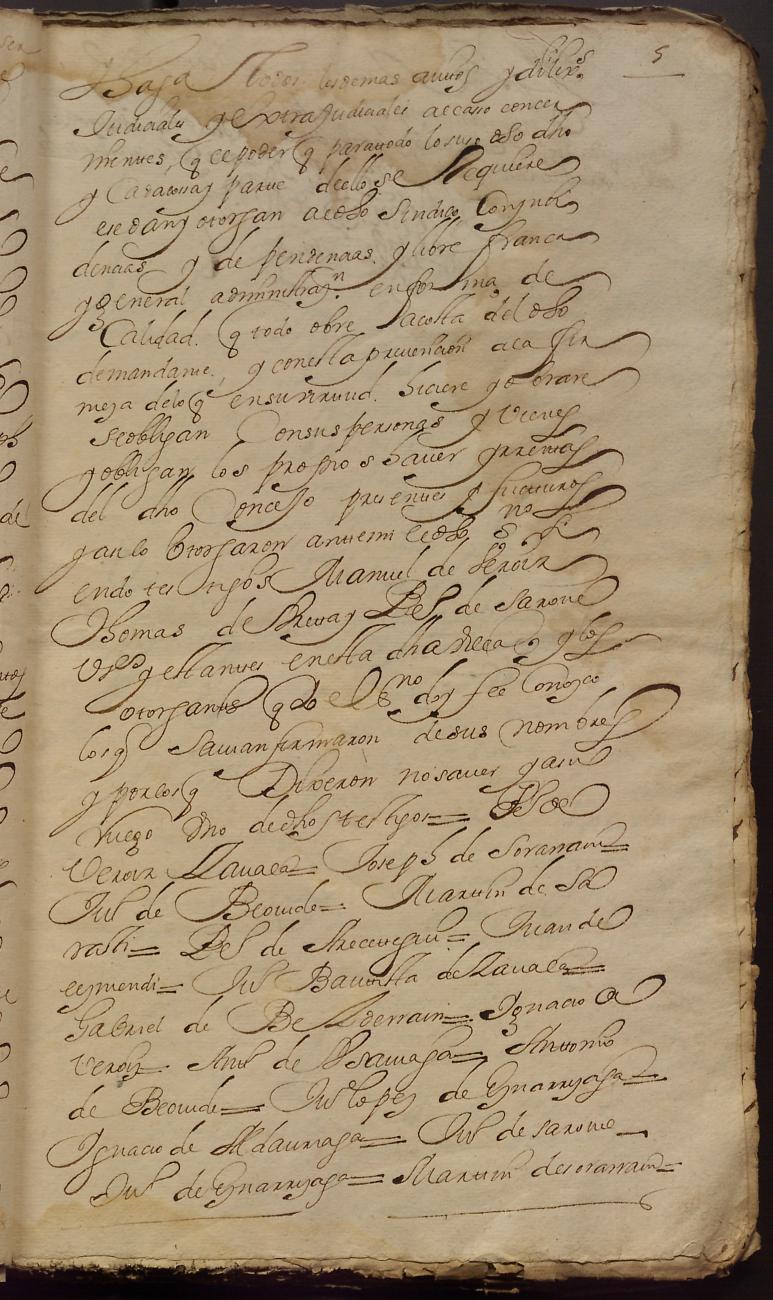 5
Haga todos los demas autos y diligs
Judiciales y extrajudiciales al caso concer
nientes, q el poder q para todo lo suso dho
y cada cosa y parte dello se Requiere
ese dan y otorgan a dho Sindico Con ynci
dencias y dependencias, y libre franca
y general administrazn en forma de
Calidad, q todo obre a costa del dho
demandante, y con esta prevencion a la fir
meza de lo q en su virtud hiciere y obrare
se obligan Con sus personas y vienes
y obligan los propios haver y rrentas
del dho Concejo presentes y futuros
y asi lo otorgaron ante mi el dho sno si
endo testigos Manuel de Veroiz
Thomas de y Bel de Sarove
vzos y estantes en esta dha y los
otorgantes q yo el Sno doy fee Conozco
los q Savian firmaron de sus nombres
y por los q Dixeron no saver y a su
ruego Uno de dhos testigos = Jsoe
Veroiz Zavala = Joseph de Sorarrain =
Jul de Beovide = Martin de Sa
rasti = Bel de Arecevegui = Juan de
eymendi = Jul Bautista de Zavala =
Gabriel de Belderrain = Ignacio de
Veroiz = Anl de Alsamasa = Antonio
de Beovide = Ju Lopez de Ynarryaga =
Ignacio de Aldaursaga = Jul de sarove =
Jul de Ynarryaga = Martin de sorarrain =